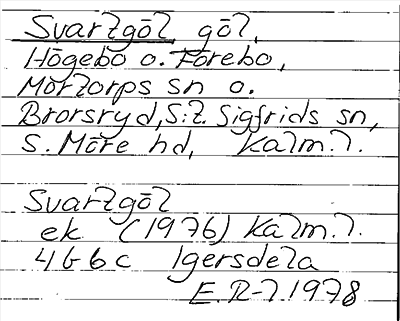 Svartgöl, göl,
Högebo o. Förebo,
Mortorps sn o.
Brorsryd, S:t Sigfrids sn,
S. Möre hd, Kalm.l.
Svartgöl
ek (1976) Kalm.l.
4G6c Igersdela
E.R-l 1978